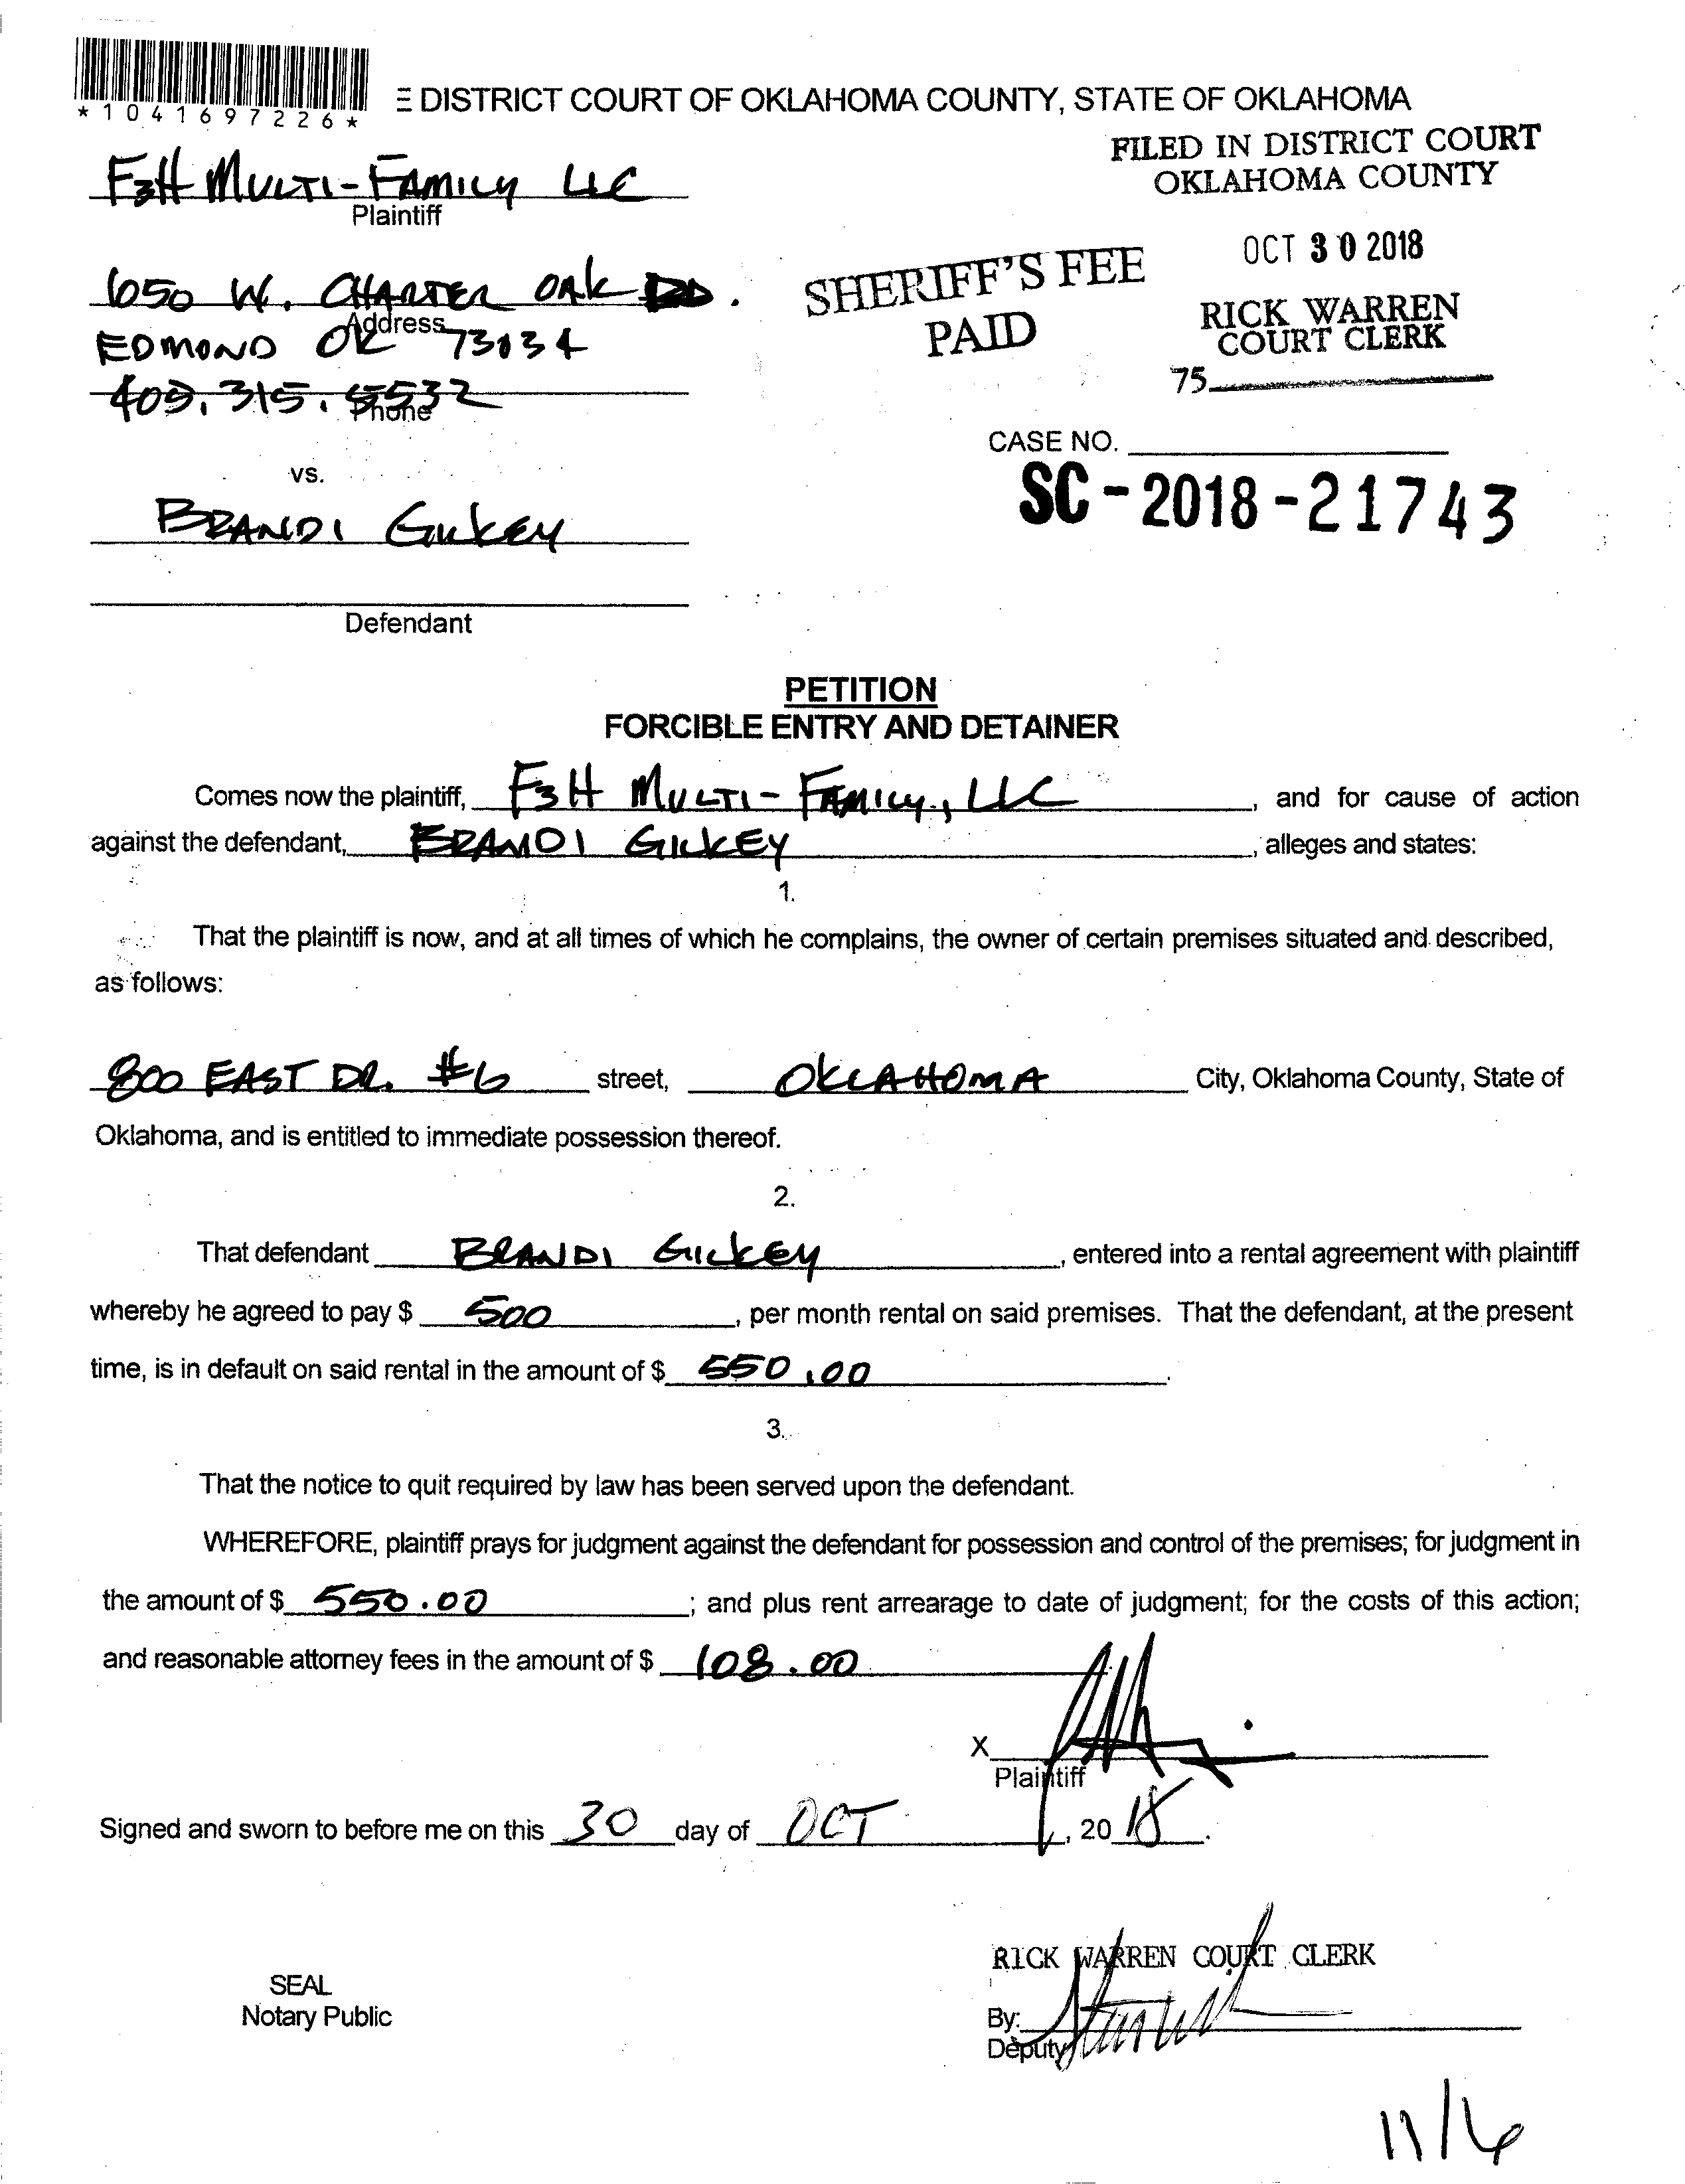 *1041697226*
E DISTRICT COURT OF OKLAHOMA COUNTY, STATE OF OKLAHOMA
FILED IN DISTRICT COURT
OKLAHOMA COUNTY
F3H MULTI-FAMILY LLC
Plaintiff
OCT 30 2018
SHERIFF'S FEE
PAID
RICK WARREN
COURT CLERK
75
650 W. CHARTER OAK RD.
Address
EDMOND OK 73034
405.315.5532
Phone
CASE NO.
SC-2018-21743
vs.
BRANDI GILKEY
Defendant
PETITION
FORCIBLE ENTRY AND DETAINER
Comes now the plaintiff, F3H MULTI-FAMILY, LLC, and for cause of action
against the defendant, BRANDI GILKEY, alleges and states:
1.
That the plaintiff is now, and at all times of which he complains, the owner of certain premises situated and described,
as follows:
800 EAST DR. #6 street, OKLAHOMA City, Oklahoma County, State of
Oklahoma, and is entitled to immediate possession thereof.
2.
That defendant BRANDI GILKEY, entered into a rental agreement with plaintiff
whereby he agreed to pay $ 500, per month rental on said premises. That the defendant, at the present
time, is in default on said rental in the amount of $ 550.00.
3.
That the notice to quit required by law has been served upon the defendant.
WHEREFORE, plaintiff prays for judgment against the defendant for possession and control of the premises; for judgment in
the amount of $ 550.00; and plus rent arrearage to date of judgment; for the costs of this action;
and reasonable attorney fees in the amount of $ 108.00
X
Plaintiff
Signed and sworn to before me on this 30 day of OCT, 2018.
RICK WARREN COURT CLERK
SEAL
Notary Public
By:
Deputy
11/6